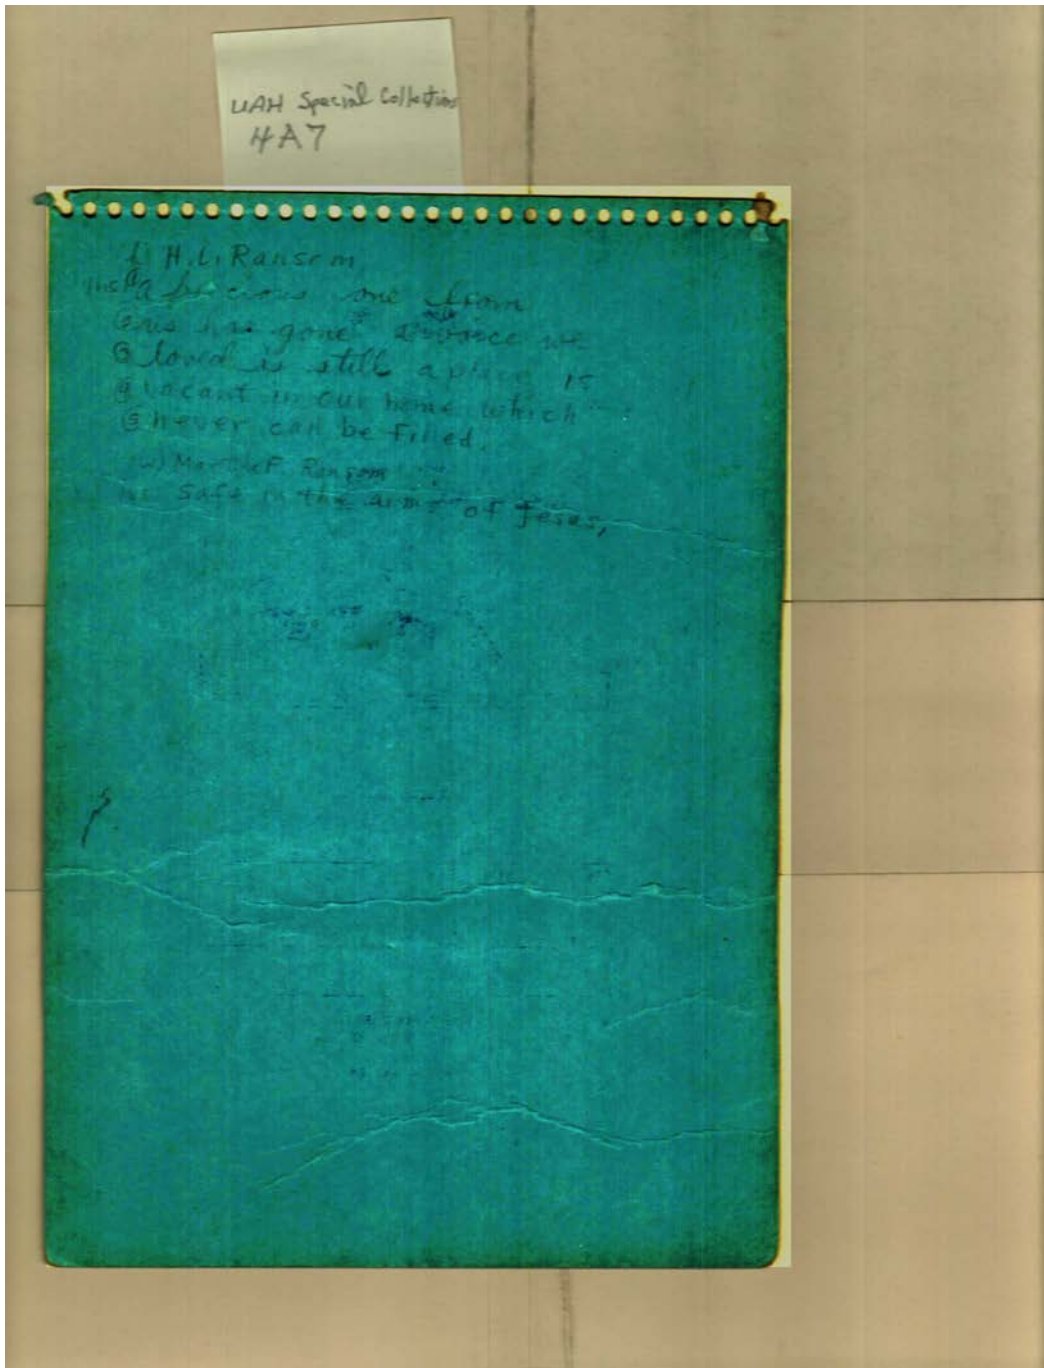 UAH Special Collections
4A7
H.L. Ransom
Ins ① a precious one from
② us has gone a voice we
③ loved is still a place is
④ vacant in our home which
⑤ never can be filled.
(w) F. Ransom
Safe in the arms of Jesus,